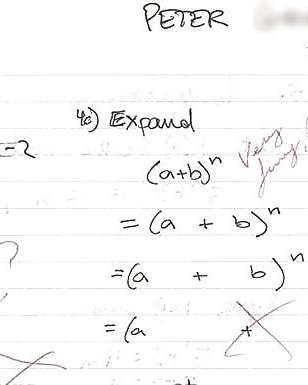 PETER
4c) Expand
=2
(a+b)ⁿ
Very funny!
= (a + b)ⁿ
?
=(a + b)ⁿ
= (a +